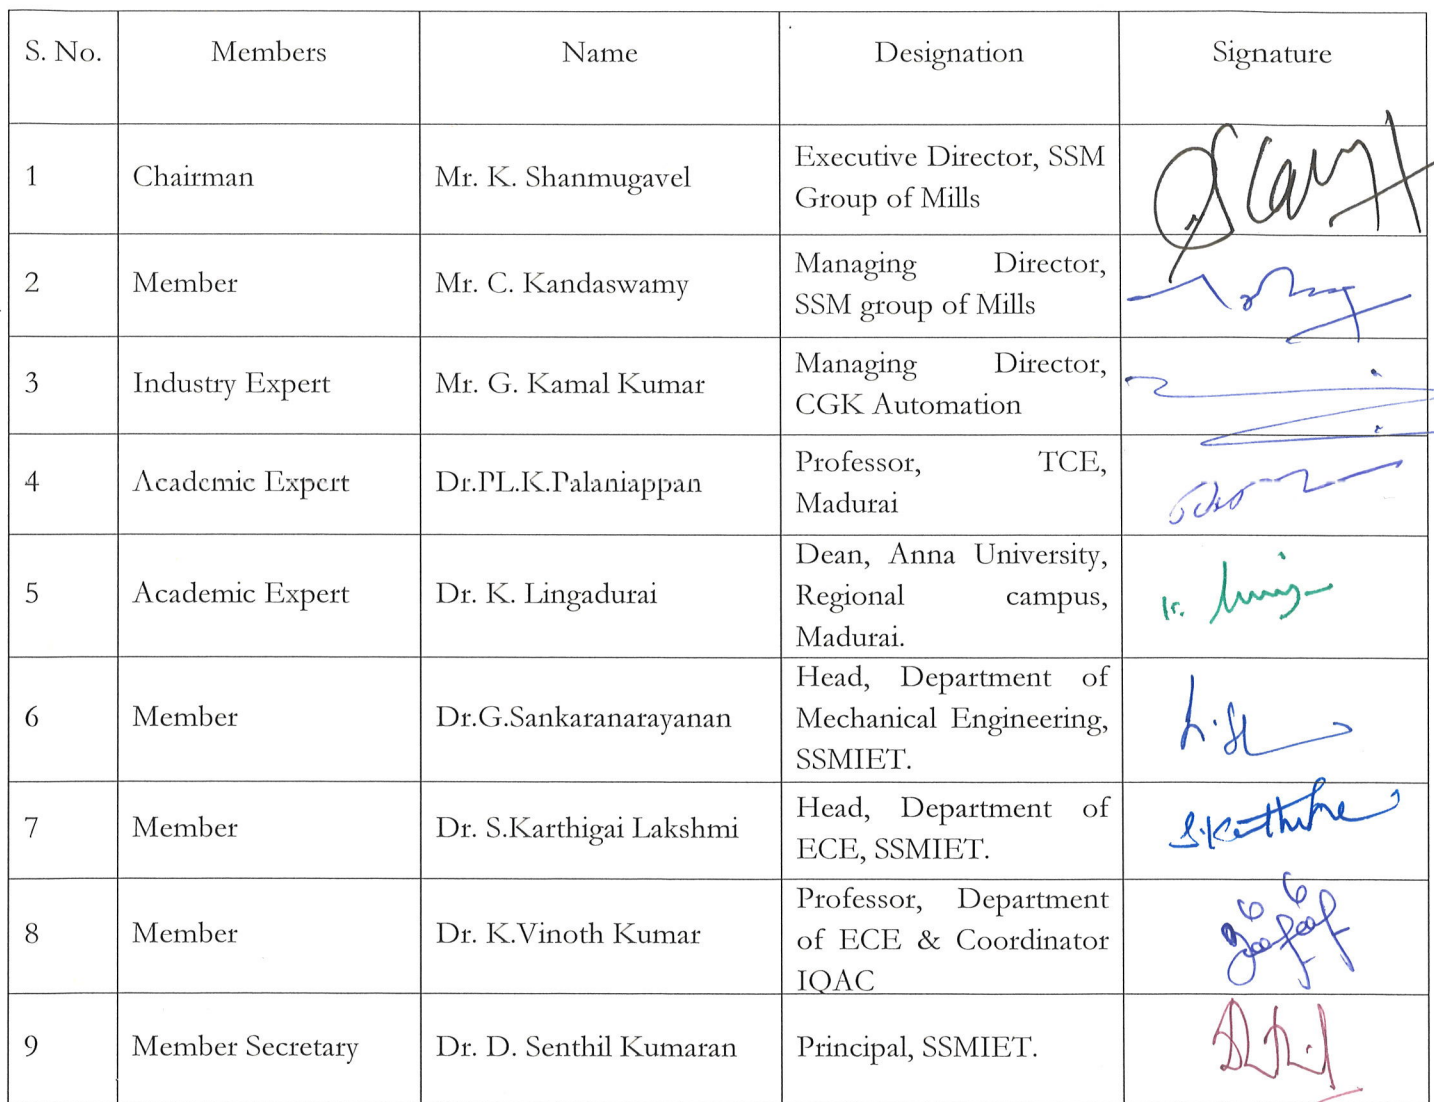 S. No. Members Name Designation Signature
1 Chairman Mr. K. Shanmugavel Executive Director, SSM
Group of Mills
2 Member Mr. C. Kandaswamy Managing Director,
SSM group of Mills
3 Industry Expert Mr. G. Kamal Kumar Managing Director,
CGK Automation
4 Academic Expert Dr.PL.K.Palaniappan Professor, TCE,
Madurai
5 Academic Expert Dr. K. Lingadurai Dean, Anna University,
Regional campus,
Madurai.
6 Member Dr.G.Sankaranarayanan Head, Department of
Mechanical Engineering,
SSMIET.
7 Member Dr. S.Karthigai Lakshmi Head, Department of
ECE, SSMIET.
8 Member Dr. K.Vinoth Kumar Professor, Department
of ECE & Coordinator
IQAC
9 Member Secretary Dr. D. Senthil Kumaran Principal, SSMIET.